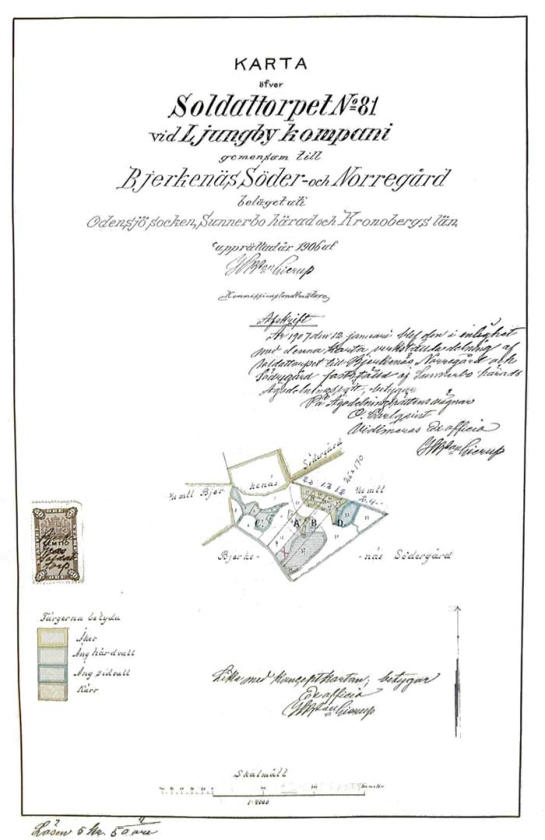 KARTA
öfver
Soldattorpet No 81
vid Ljungby kompani
gemensam till
Bjerkenäs, Söder- och Norregård
beläget uti
Odensjö socken, Sunnerbo härad och Kronobergs län,
upprättad år 1906 af
Kommissionslandtmätare
Afskrift
År 1907 den 12 januari blef den i enlighet
med denna karta verkställda delning af
soldattorpet till Bjerkenäs, Norregård och
Södregård fastställd af Sunnerbo härads
Ägodelningsrätt, betygar
På Ägodelningsrättens vägnar
Vidimeras Ex officio
Södergård
Bjer kenäs
C A B D
Bjerke- näs Södergård
Färgerna betyda
Åker
Äng hårdvall
Äng sidvall
Kärr
Lika med konceptkartan, betygar
Ex officio
Skalmått
1:4000
Lösen 5 kr. 50 öre